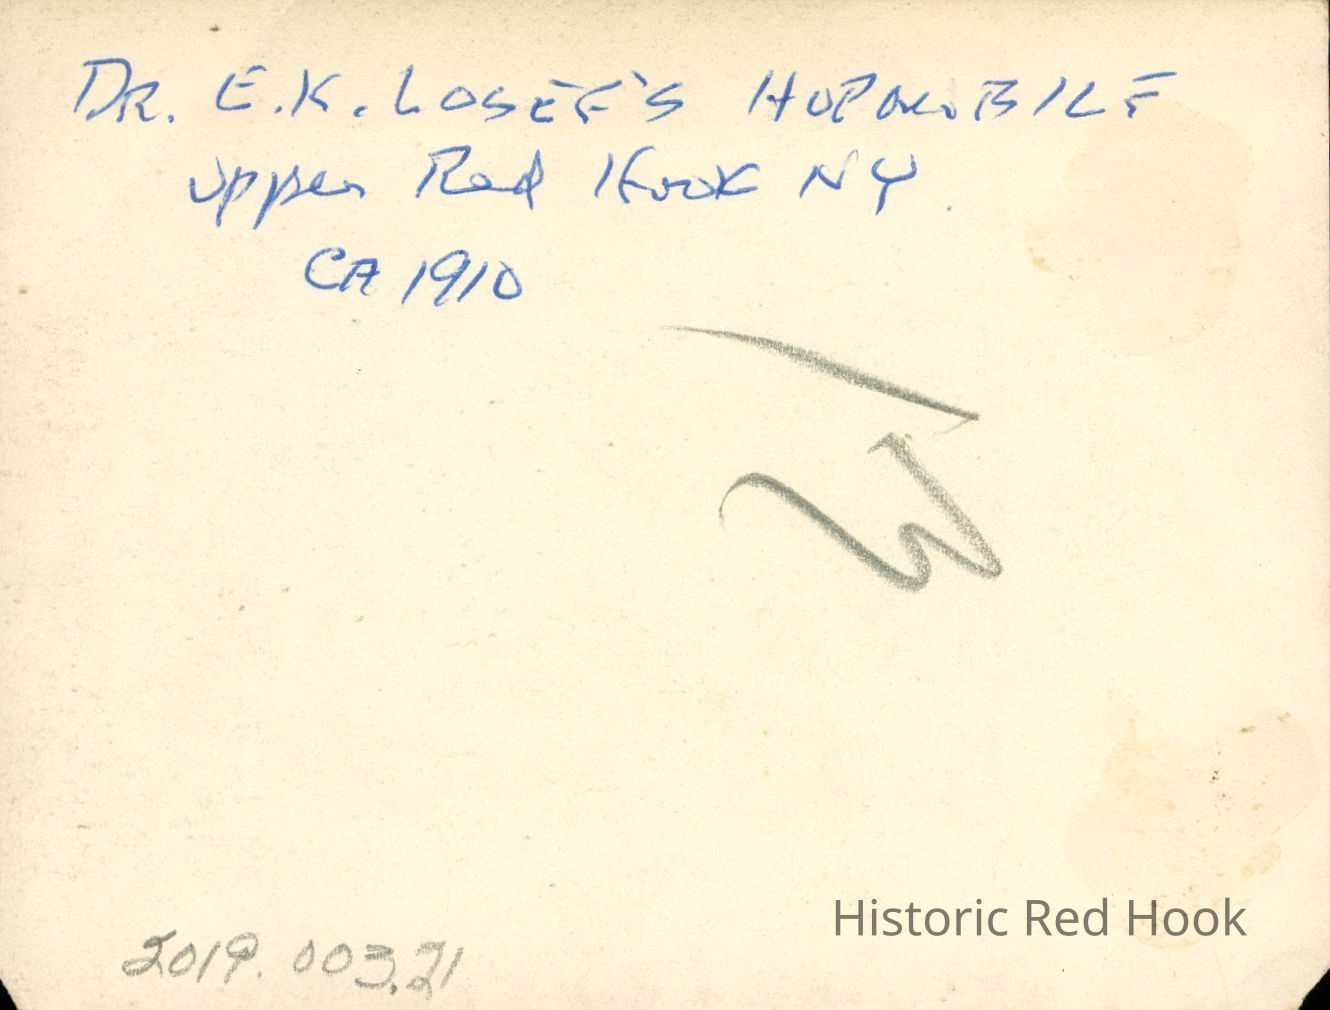 DR. E.K. LOSEE'S HUPMOBILE
Upper Red Hook NY.
CA 1910
Historic Red Hook
2019.003.21